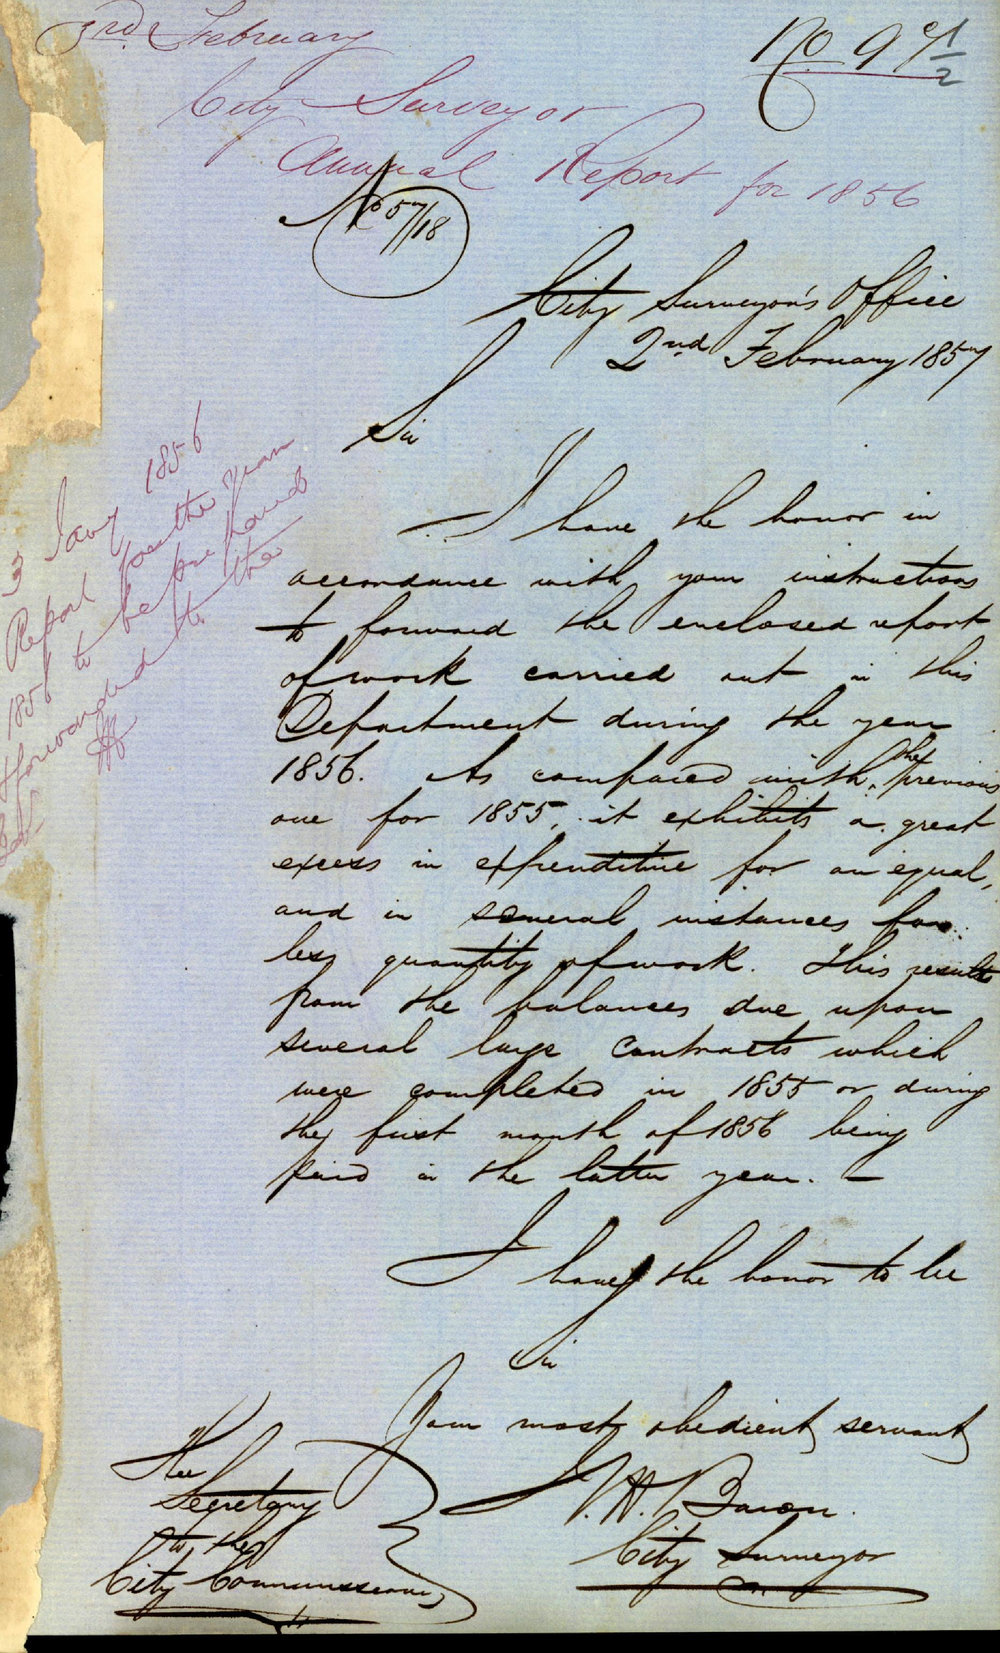 3rd February
No 97 1/2
City Surveyor
Annual Report for 1856
No 57/18
City Surveyor's Office
2nd February 1857
Sir
3 Jany 1856
Report for the year
1856 to be
forwarded to the
I have the honor in
accordance with your instructions
to forward the enclosed report
of work carried out in this
Department during the year
1856. As compared with the previous
one for 1855, it exhibits a great
excess in expenditure for an equal,
and in several instances far
less quantity of work. This results
from the balances due upon
several large Contracts which
were completed in 1855 or during
the first month of 1856 being
paid in the latter year. —
I have the honor to be
Sir
Your most obedient servant
City Surveyor
The
Secretary
to the
City Commissioners